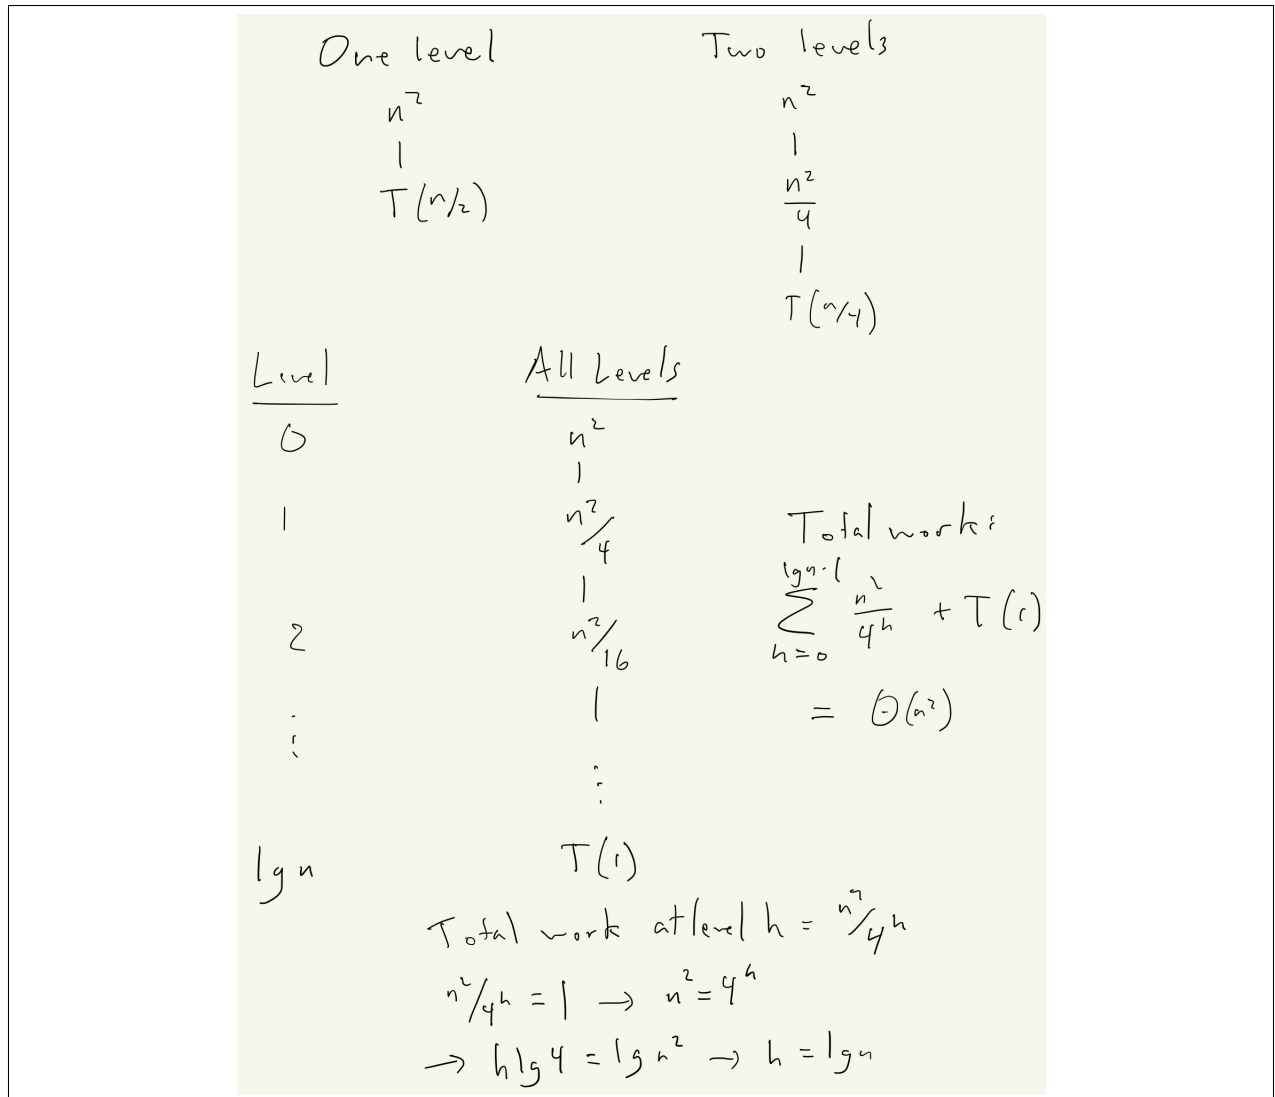 One level
n²
|
T(n/2)
Two levels
n²
|
n²/4
|
T(n/4)
Level All Levels
0 n²
|
1 n²/4
|
2 n²/16
|
⋮ ⋮
lg n T(1)
Total work:
∑_{h=0}^{lg n-1} n²/4^h + T(1)
= Θ(n²)
Total work at level h = n²/4^h
n²/4^h = 1 → n² = 4^h
→ h lg 4 = lg n² → h = lg n